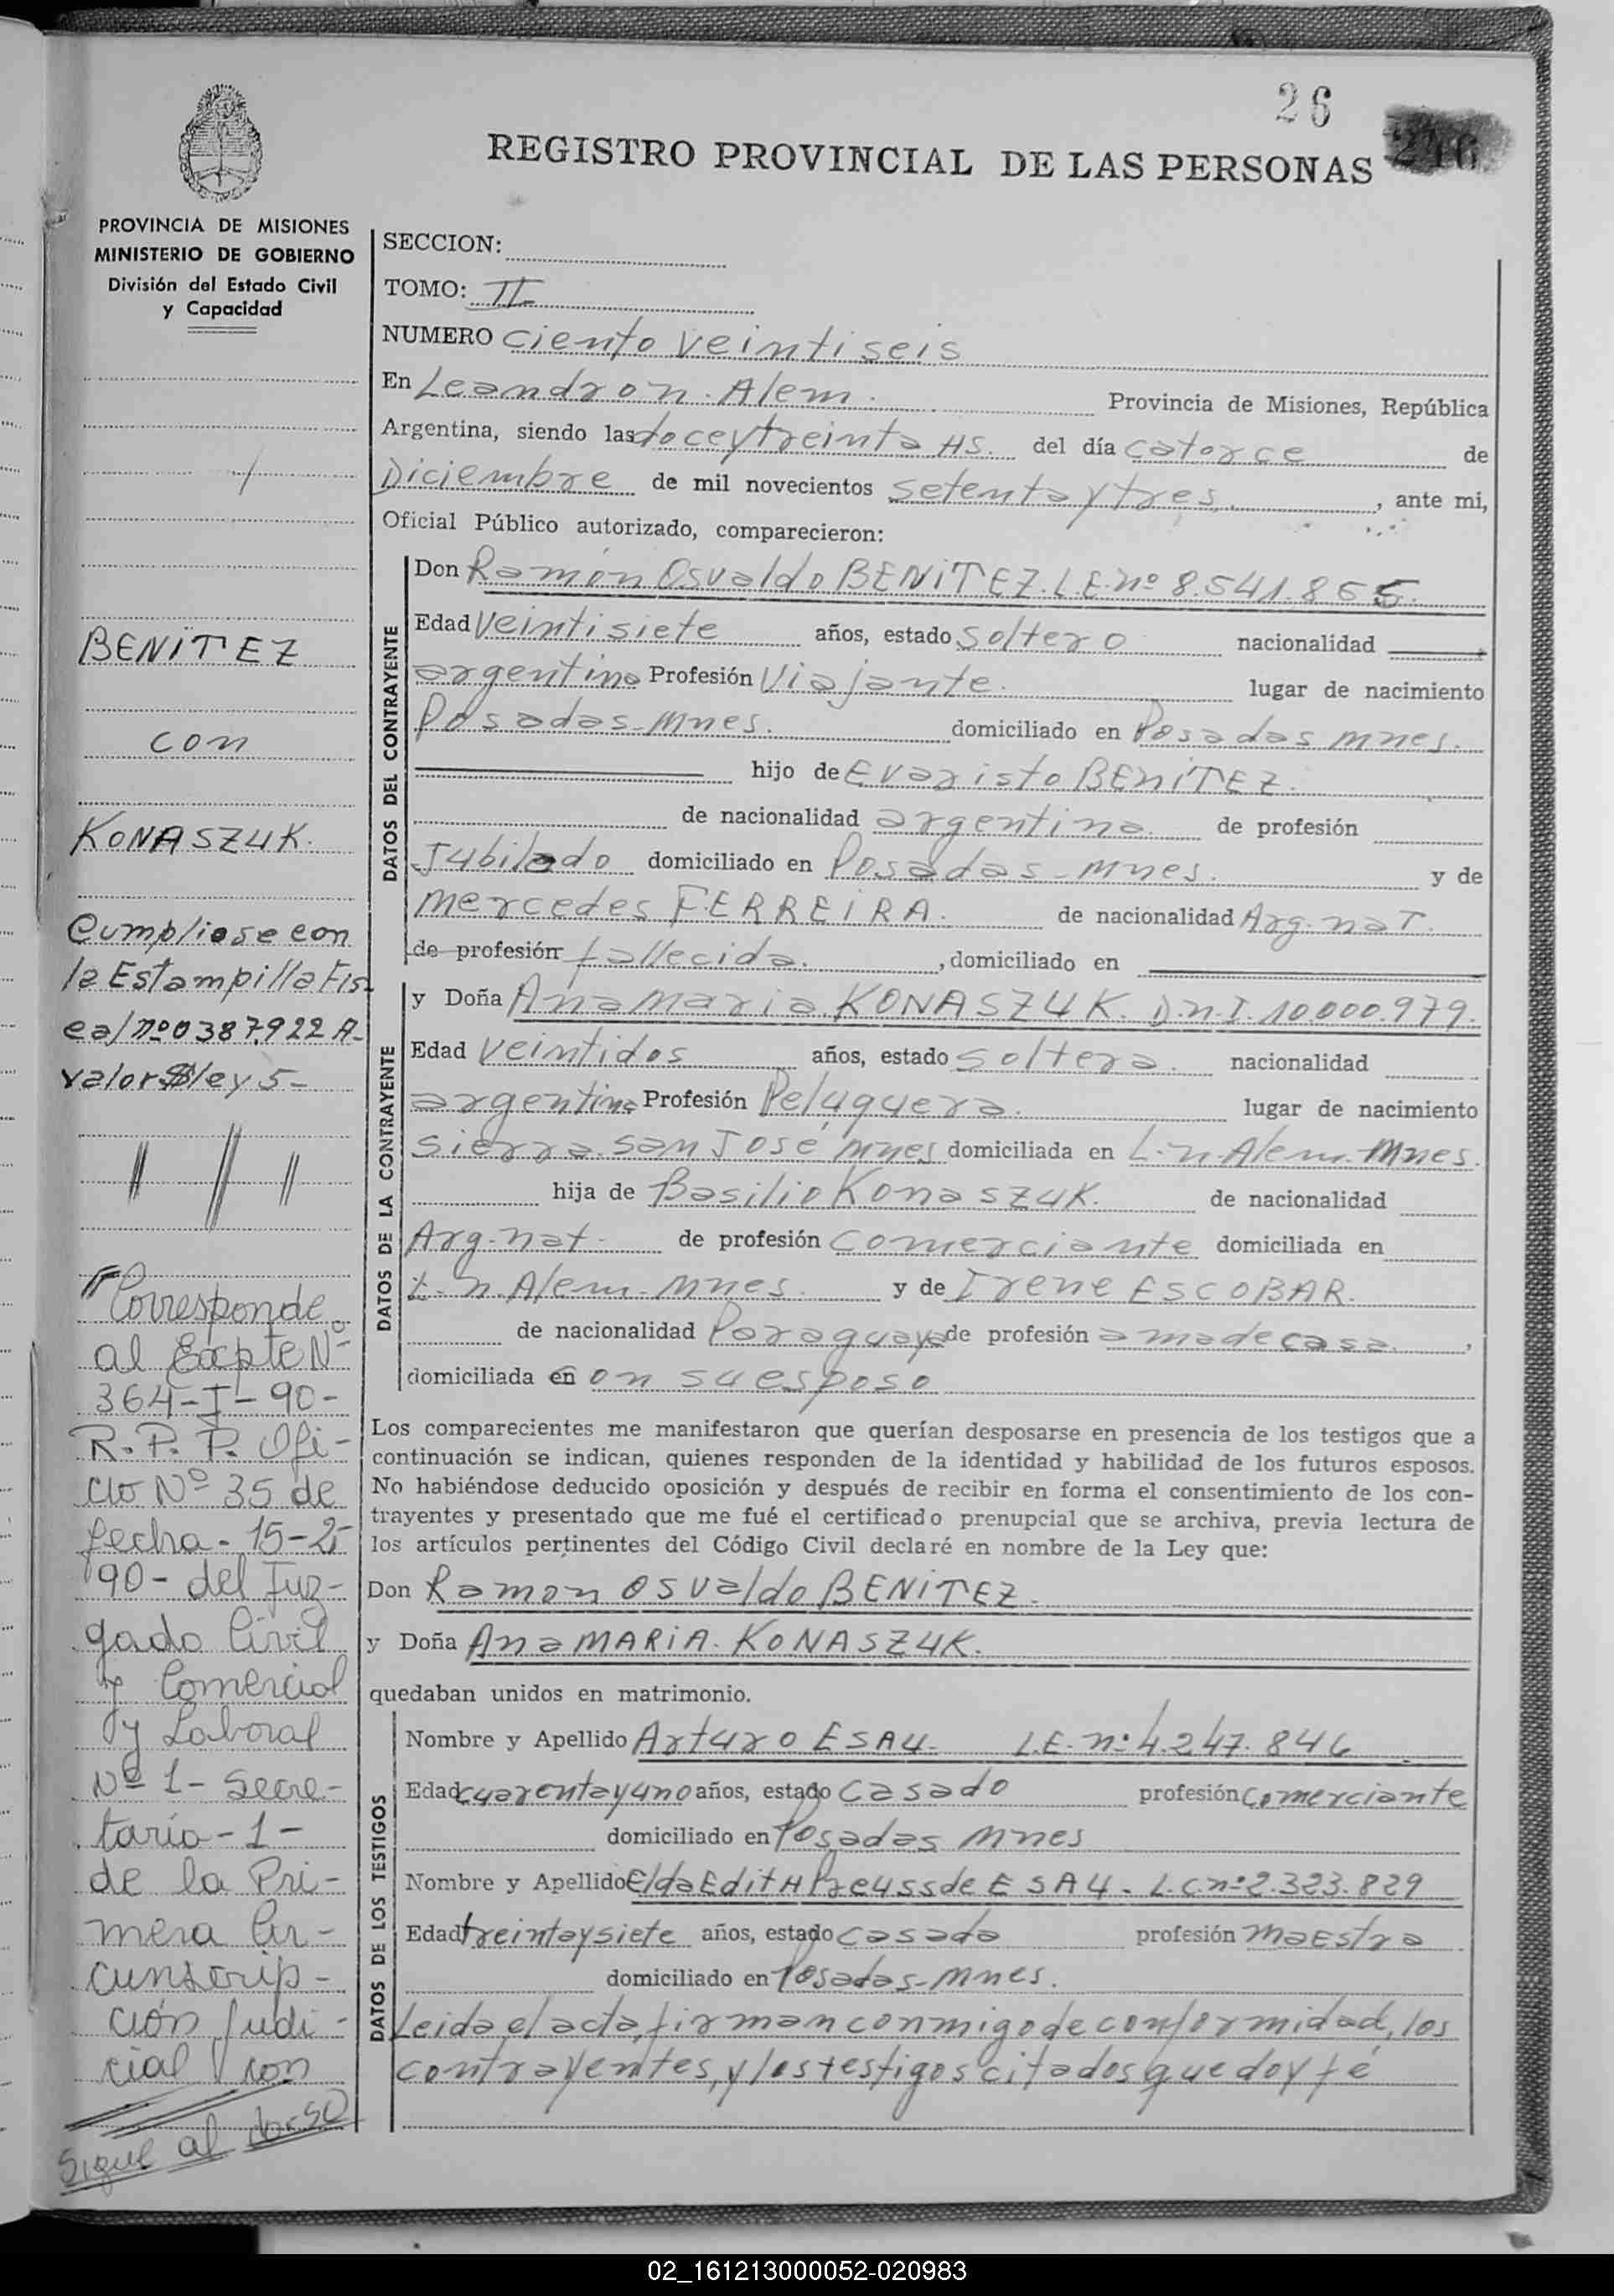 26
246
REGISTRO PROVINCIAL DE LAS PERSONAS
PROVINCIA DE MISIONES
MINISTERIO DE GOBIERNO
División del Estado Civil
y Capacidad
BENITEZ
con
KONASZUK.
Cumpliose con
la Estampilla Fis
cal nº 0387.922 A-
valor $ ley 5-
Corresponde
al Expte Nº
364-I-90-
R.P.P. Ofi-
cio Nº 35 de
fecha - 15-2-
90- del Juz-
gado Civil
y Comercial
y Laboral
Nº 1- Secre-
taría -1-
de la Pri-
mera Cir-
cunscrip-
ción Judi-
cial con
Sigue al dorso
SECCION:
TOMO: II
NUMERO ciento veintiseis
En Leandro n. Alem. Provincia de Misiones, República
Argentina, siendo las doce y treinta HS. del día catorce de
Diciembre de mil novecientos setenta y tres, ante mi,
Oficial Público autorizado, comparecieron:
DATOS DEL CONTRAYENTE
Don Ramón Osvaldo BENITEZ. L.E. nº 8.541.855.
Edad veintisiete años, estado soltero nacionalidad
argentina Profesión Viajante. lugar de nacimiento
Posadas-mnes. domiciliado en Posadas mnes.
hijo de Evaristo BENITEZ.
de nacionalidad argentina. de profesión
Jubilado domiciliado en Posadas-mnes. y de
mercedes FERREIRA. de nacionalidad Arg. naT.
de profesión fallecida. , domiciliado en
DATOS DE LA CONTRAYENTE
y Doña Ana maria KONASZUK. D.n.I. 10.000.979.
Edad veintidos años, estado soltera. nacionalidad
argentina Profesión Peluquera. lugar de nacimiento
sierra. san José mnes domiciliada en L.n.Alem-Mnes.
hija de Basilio Konaszuk. de nacionalidad
Arg-nat- de profesión comerciante domiciliada en
L.n. Alem-mnes. y de Irene ESCOBAR.
de nacionalidad Paraguaya de profesión ama de casa ,
domiciliada en on su esposo
Los comparecientes me manifestaron que querían desposarse en presencia de los testigos que a
continuación se indican, quienes responden de la identidad y habilidad de los futuros esposos.
No habiéndose deducido oposición y después de recibir en forma el consentimiento de los con-
trayentes y presentado que me fué el certificado prenupcial que se archiva, previa lectura de
los artículos pertinentes del Código Civil declaré en nombre de la Ley que:
Don Ramon OSValdo BENITEZ.
y Doña Ana MARIA. KONASZUK.
quedaban unidos en matrimonio.
DATOS DE LOS TESTIGOS
Nombre y Apellido Arturo ESAU- L.E. nº 4.247.846
Edad cuarenta y uno años, estado casado profesión comerciante
domiciliado en Posadas mnes
Nombre y Apellido Elda EditH Preuss de ESAU- L.C. nº 2.323.829
Edad treinta y siete años, estado casada profesión maestra
domiciliado en Posadas-mnes.
Leida, el acta, firman conmigo de conformidad, los
contrayentes, y los testigos citados que doy fé
02_161213000052-020983